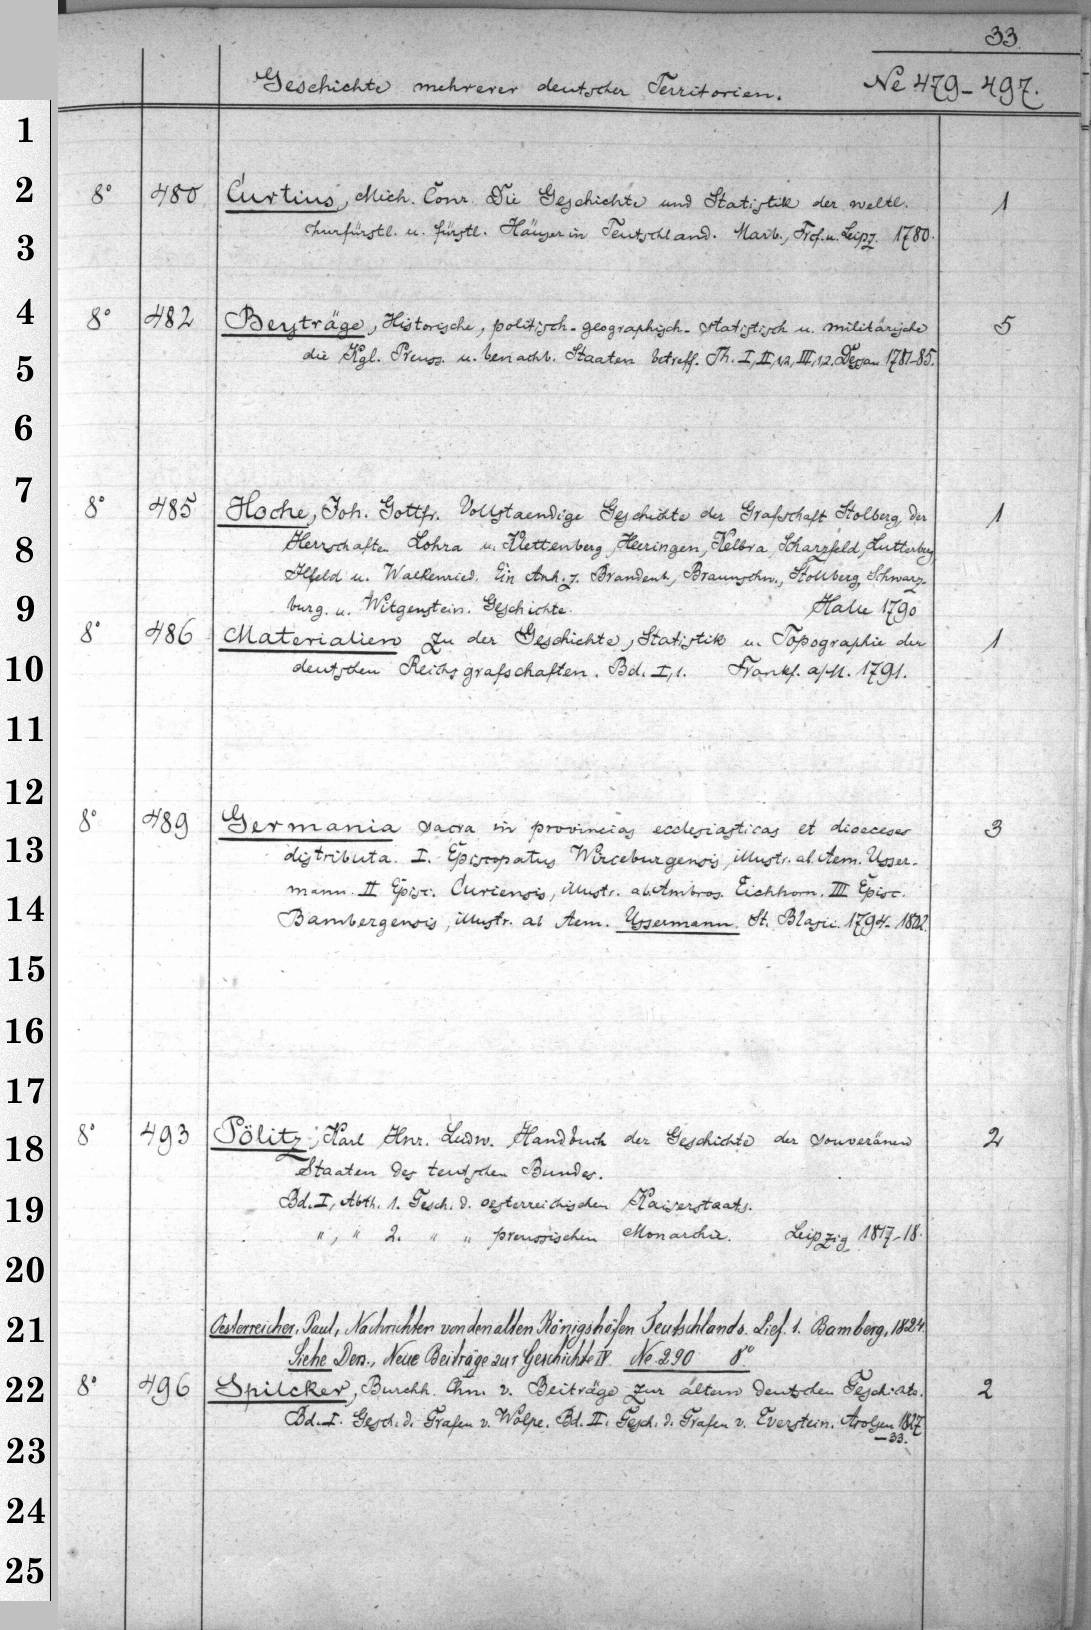 33.
Geschichte mehrerer deutscher Territorien. No 479-497.
1
2
8° 480 Curtius, Mich. Conr. Die Geschichte und Statistik der weltl. 1
3
churfürstl. u. fürstl. Häuser in Teutschland. Marb., Frcf. u. Leipz. 1780.
4
8° 482 Beyträge, Historische, politisch-geographisch-statistisch u. militärische 5
5
die Kgl. Preuss. u. benachb. Staaten betreff. Th. I, II,1,2, III,1,2. Dessau 1781-85.
6
7
8° 485 Hoche, Joh. Gottfr. Vollstaendige Geschichte der Grafschaft Stolberg, der 1
8
Herrschaften Lohra u. Klettenberg, Heeringen, Kelbra, Scharzfeld, Lutterberg,
Ilfeld u. Walkenried. Ein Anh. z. Brandenb., Braunschw., Stollberg, Schwarz-
9
burg. u. Witgenstein. Geschichte. Halle 1790
8° 486 Materialien zu der Geschichte, Statistik u. Topographie der 1
10
deutschen Reichsgrafschaften. Bd. I,1. Frankf. a/M. 1791.
11
12
8° 489 Germania sacra in provincias ecclesiasticas et dioeceses 3
13
distributa. I. Episcopatus Wirceburgensis, illustr. ab Aem. Usser-
mann. II Episc. Curiensis, illustr. ab Ambros. Eichhorn. III Episc.
14
Bambergensis, illustr. ab Aem. Ussermann. St. Blasii. 1794-1802.
15
16
17
18
8° 493 Pölitz, Karl Hnr. Ludw. Handbuch der Geschichte der souveränen 2
Staaten des teutschen Bundes.
19
Bd. I, Abth. 1. Gesch. d. oesterreichischen Kaiserstaats.
" , " 2. " " preussischen Monarchie. Leipzig 1817-18.
20
21
Oesterreicher, Paul, Nachrichten von den alten Königshöfen Teutschlands. Lief. 1. Bamberg, 1824.
Siehe Ders., Neue Beiträge zur Geschichte IV. No 290 8°
22
8° 496 Spilcker, Burchh. Chn. v. Beiträge zur ältern deutschen Geschichte. 2
Bd. I. Gesch. d. Grafen v. Wölpe. Bd. II. Gesch. d. Grafen v. Everstein. Arolsen 1827
23
-33.
24
25